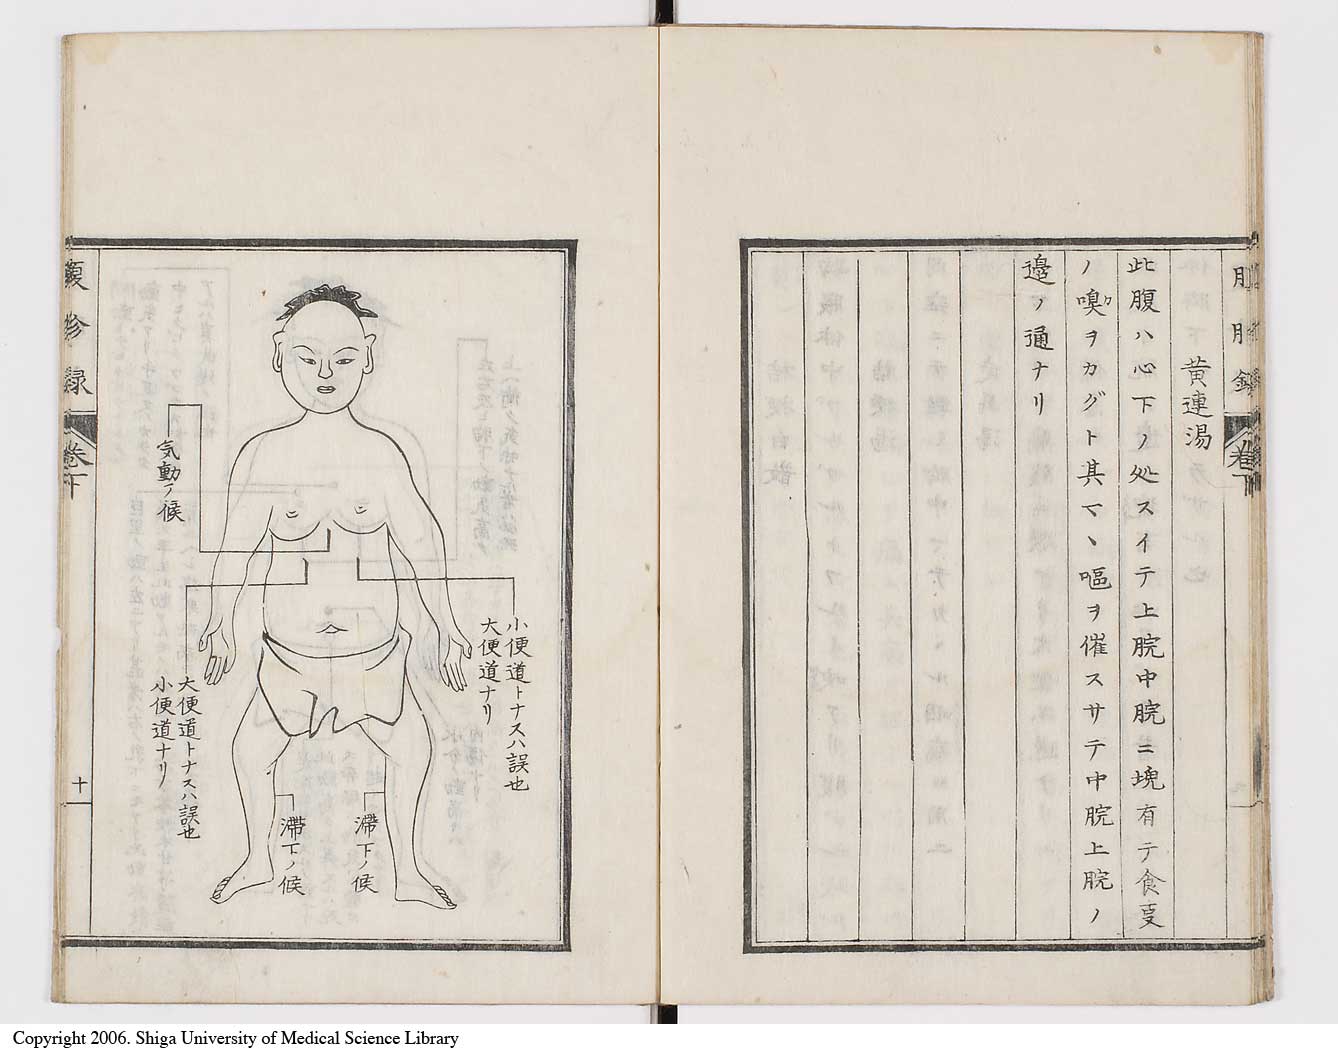 黄連湯
此腹ハ心下ノ処スイテ上脘中脘ニ塊有テ食臭
ノ嗅ヲカグト其マヽ嘔ヲ催スサテ中脘上脘ノ
邊ノ通ナリ
巻下
小便道トナスハ誤也
大便道ナリ
気動ノ候
大便道トナスハ誤也
小便道ナリ
滞下ノ候
滞下ノ候
診録
巻下
十一
Copyright 2006. Shiga University of Medical Science Library